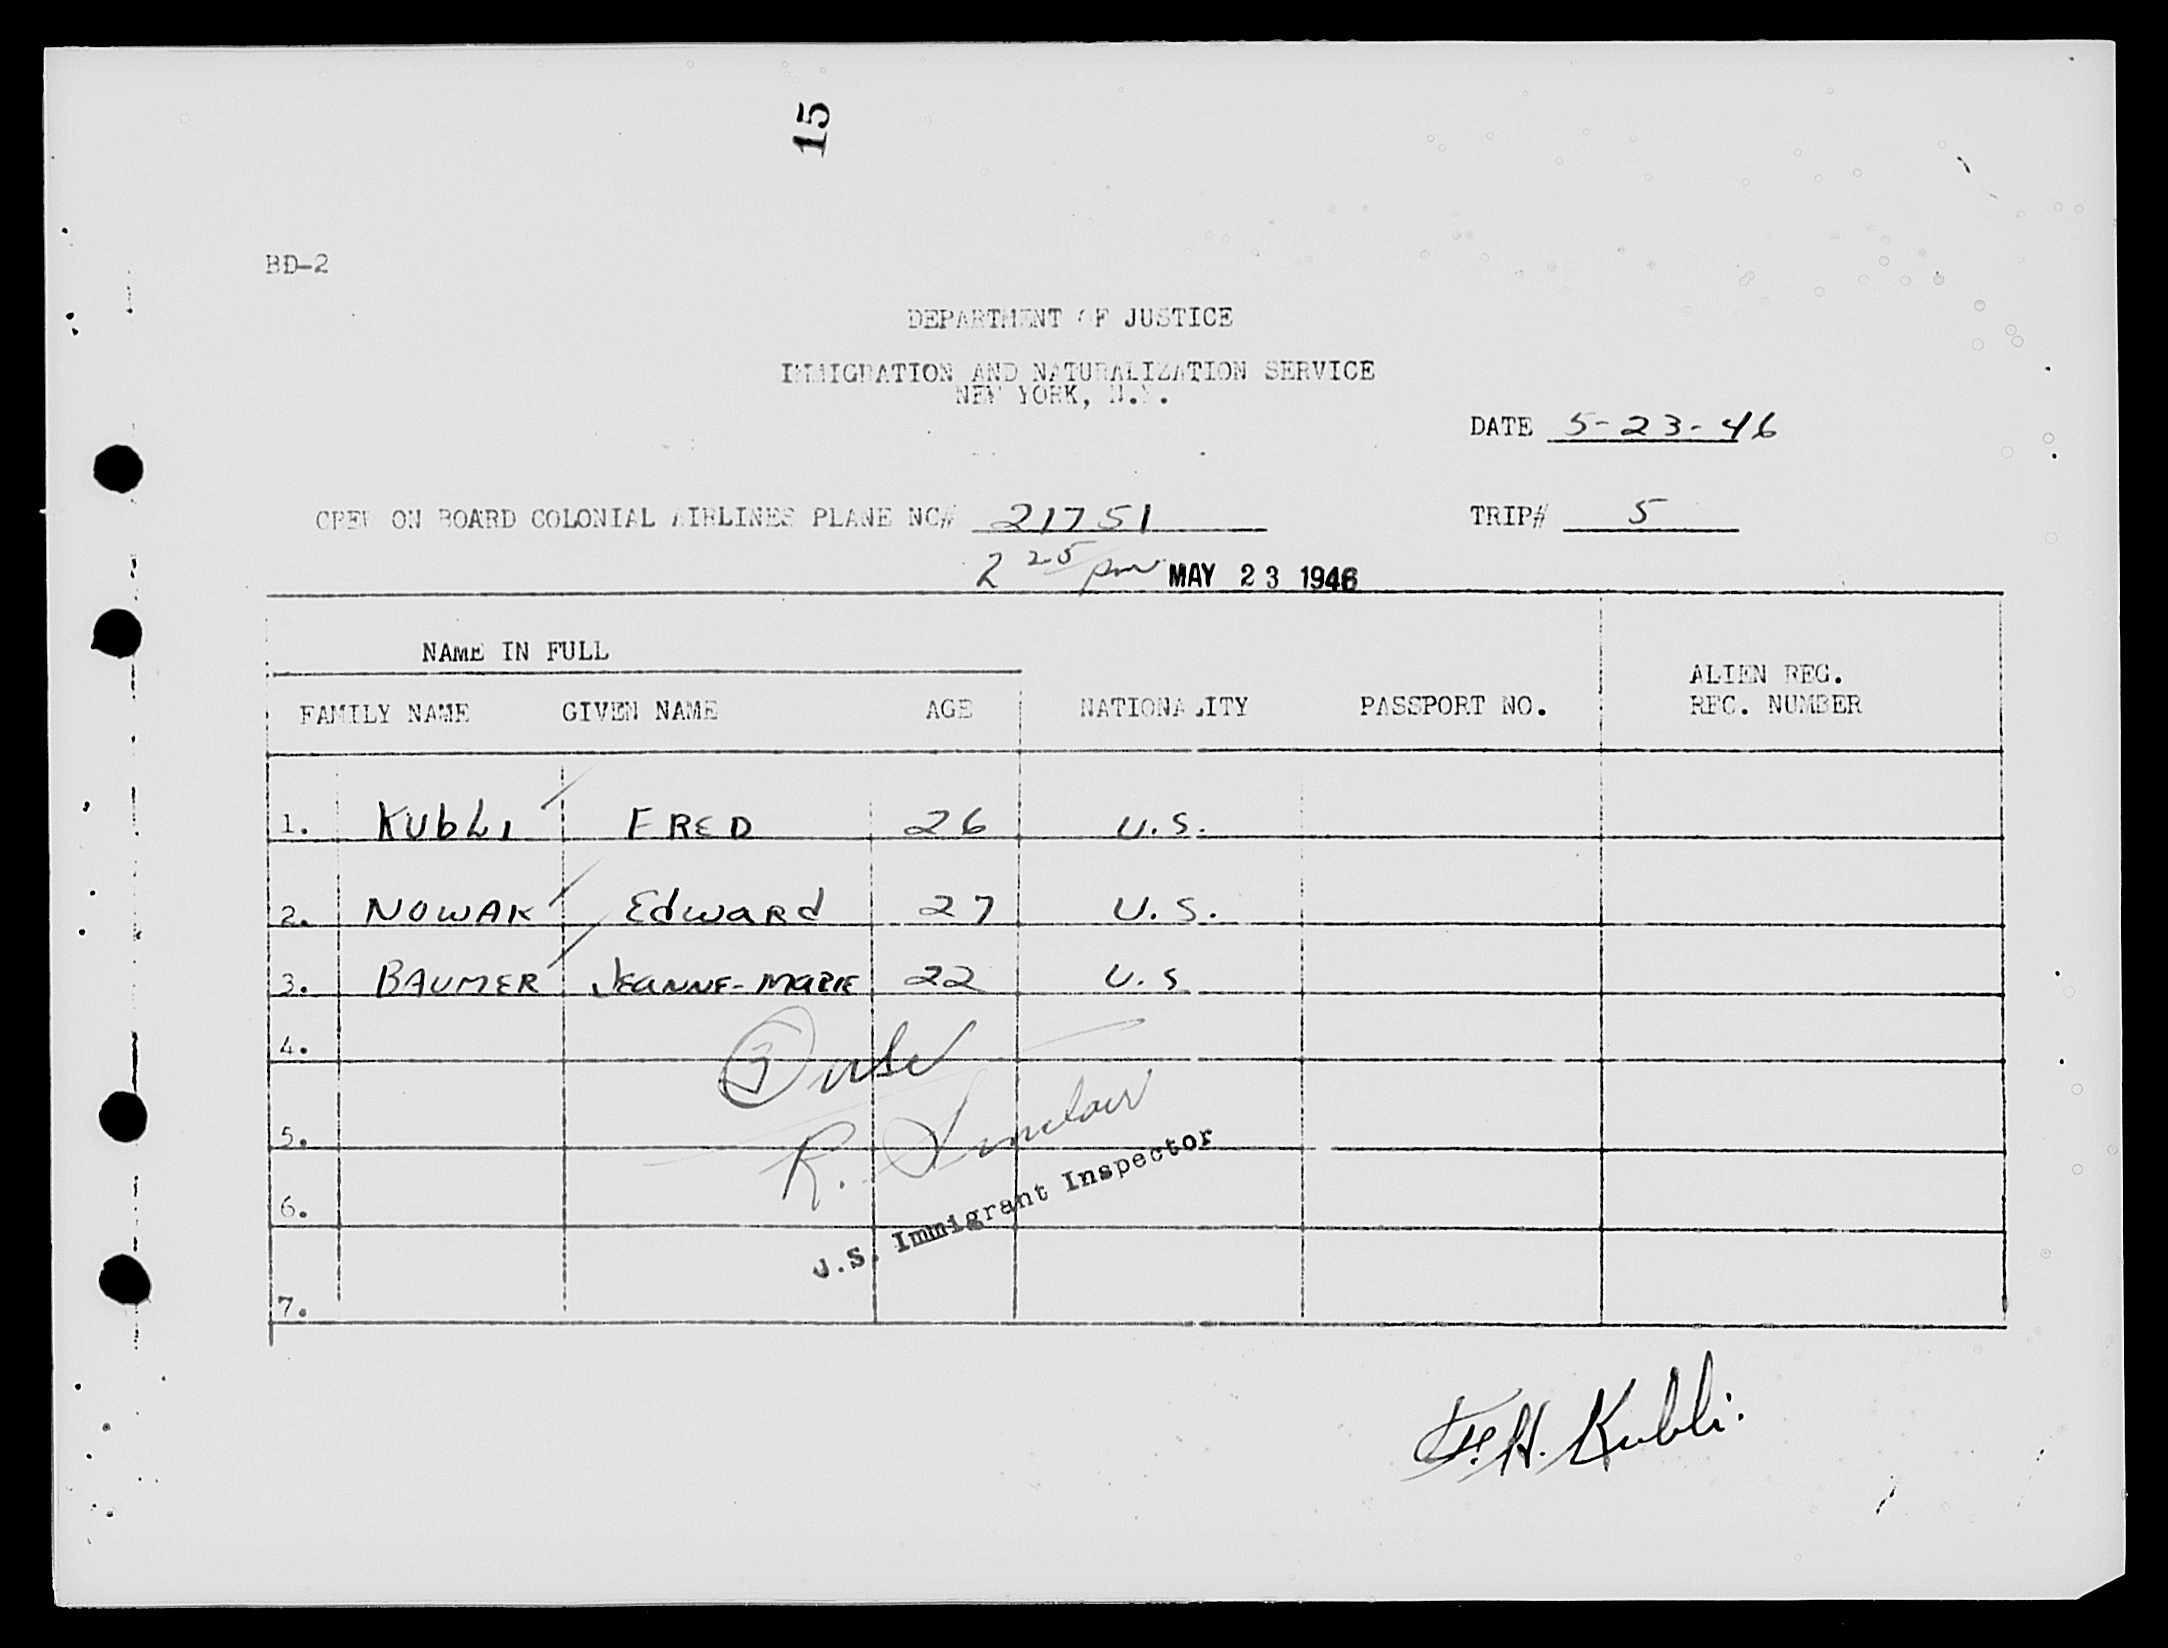 15
BD-2
DEPARTMENT OF JUSTICE
IMMIGRATION AND NATURALIZATION SERVICE
NEW YORK, N.Y.
DATE 5-23-46
CREW ON BOARD COLONIAL AIRLINES PLANE NC# 21751 TRIP# 5
2 25 pm MAY 23 1946
NAME IN FULL
ALIEN REG.
FAMILY NAME GIVEN NAME AGE NATIONALITY PASSPORT NO. REC. NUMBER
1. KUBLI FRED 26 U.S.
2. NOWAK Edward 27 U.S.
3. BAUMER JEANNE-MARIE 22 U.S
4.
3
R. Sinclair
5.
U.S. Immigrant Inspector
6.
7.
F.H. Kubli.